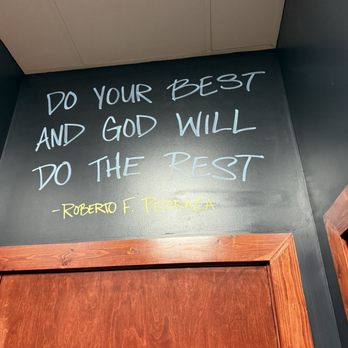 DO YOUR BEST
AND GOD WILL
DO THE REST
- ROBERTO F. PEDRAZA